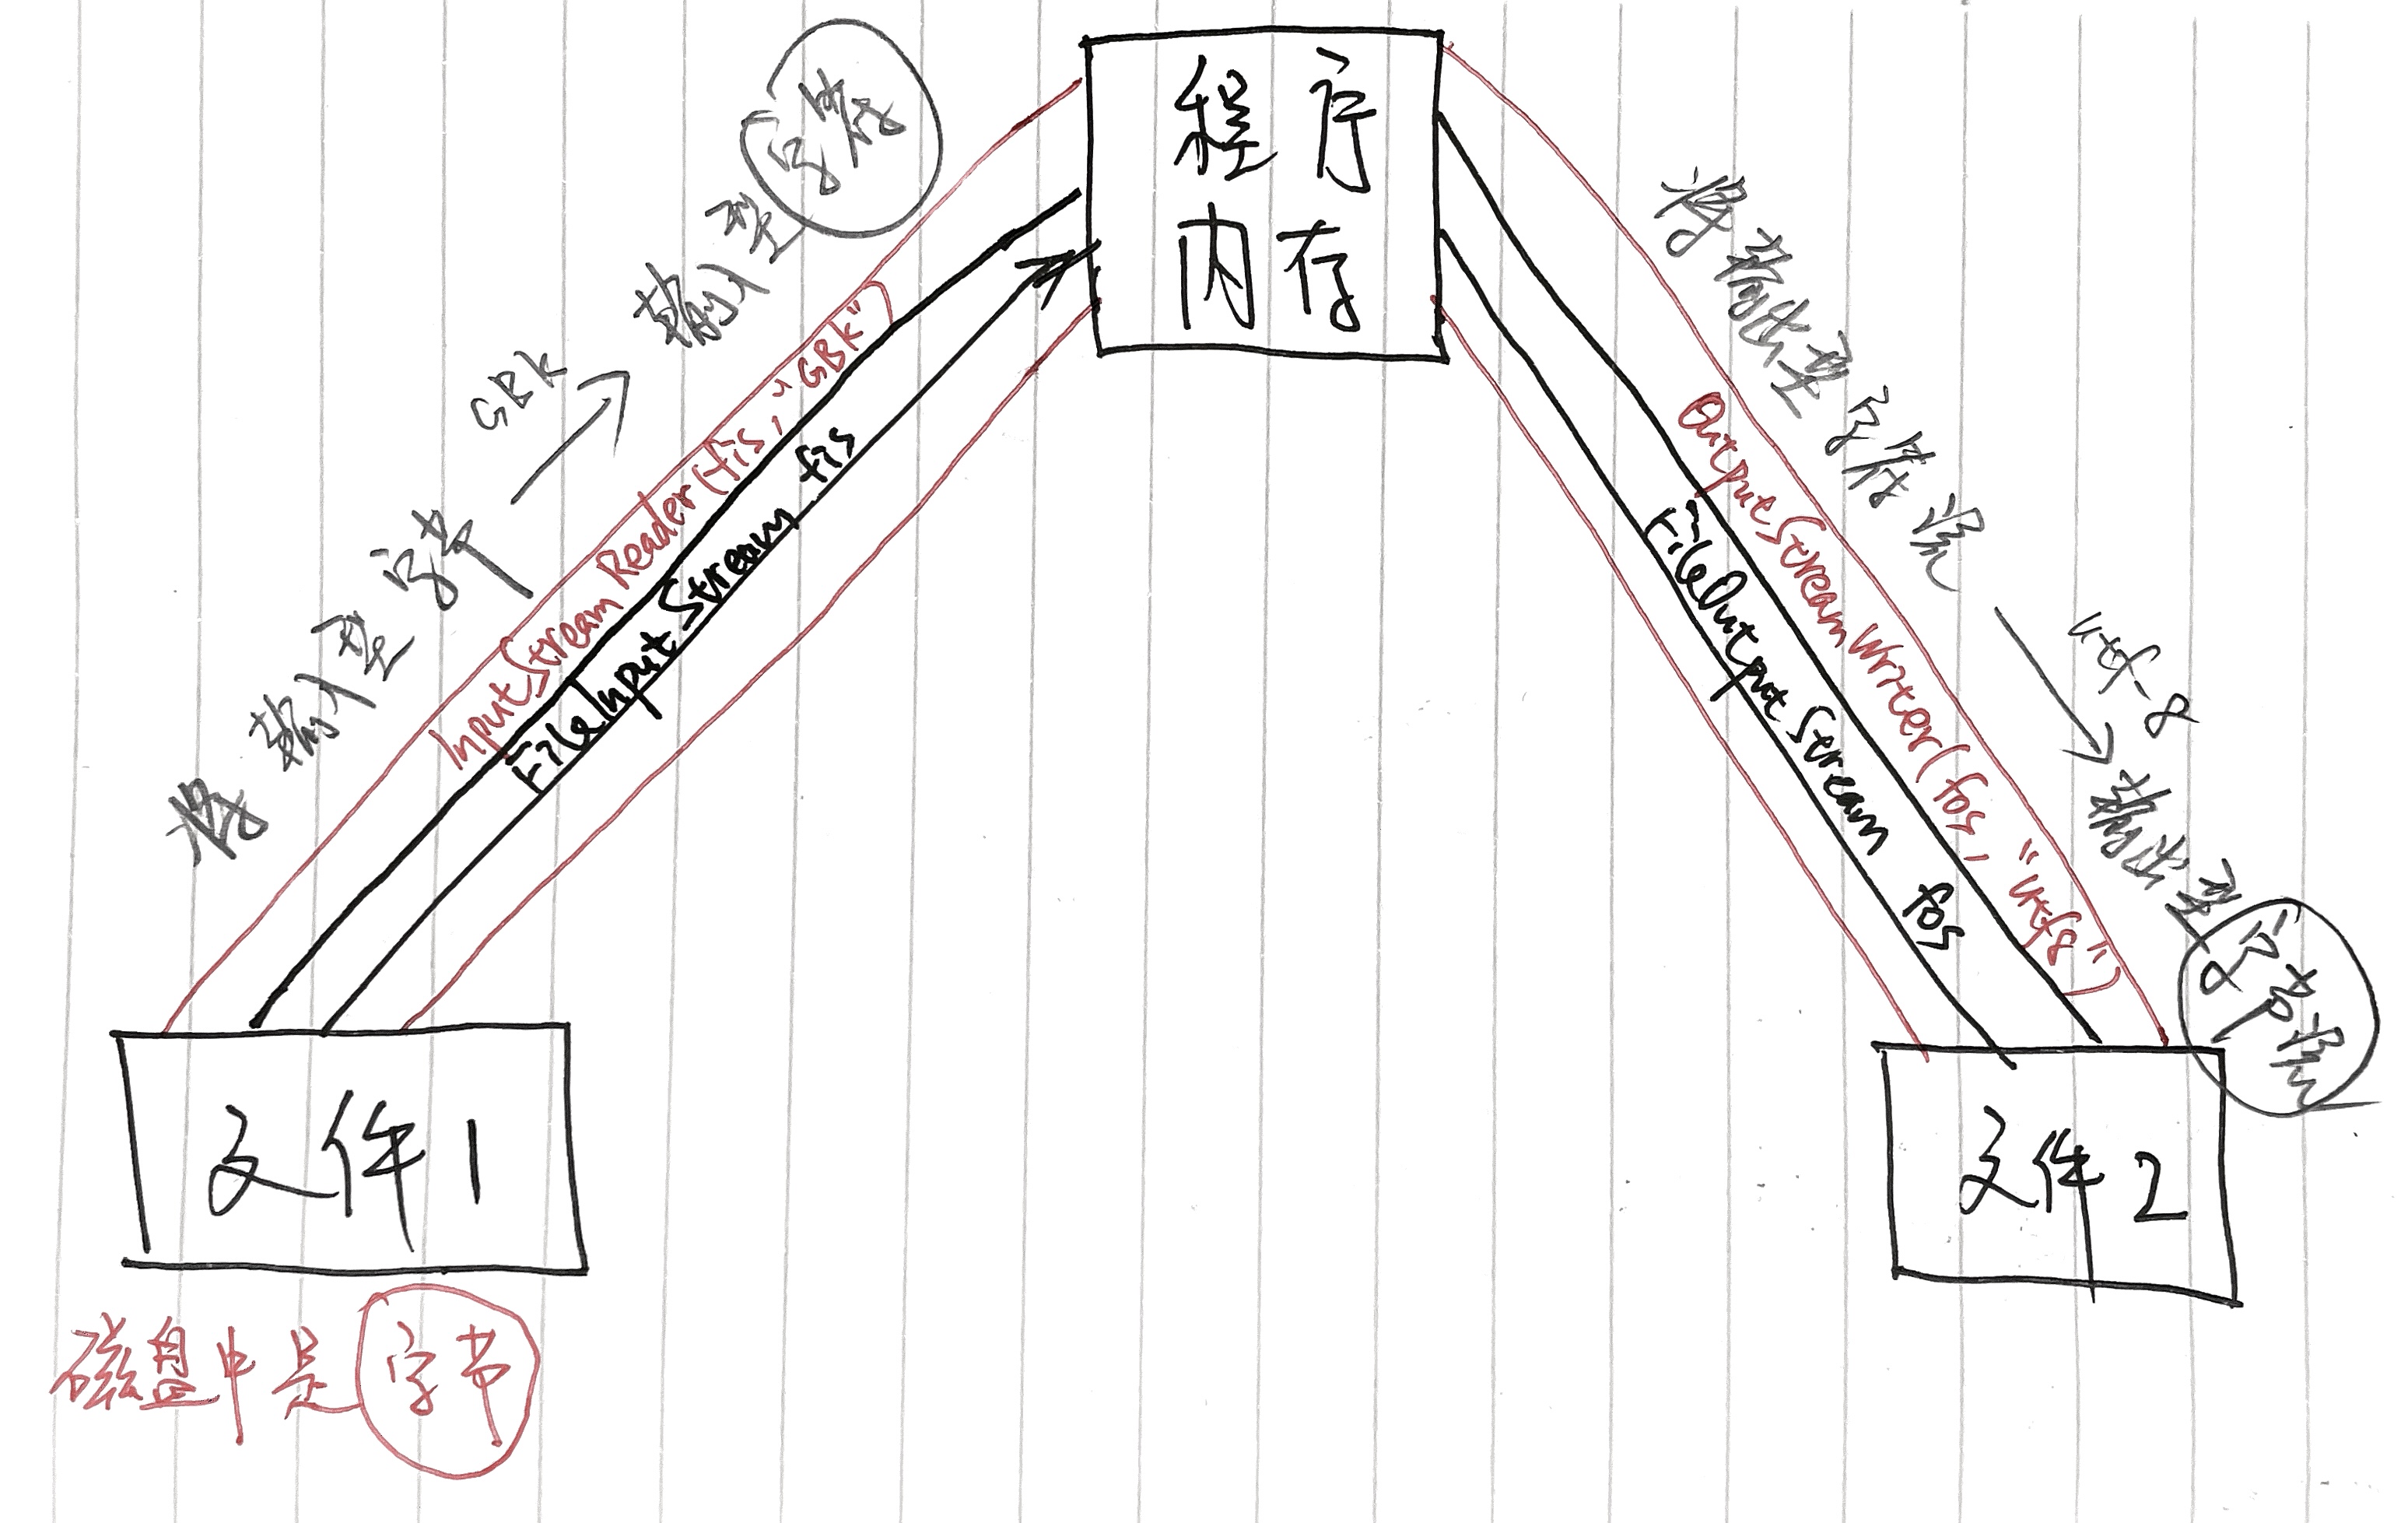 程序
内存
将输入型字节
GBK
输入型字符
InputStream Reader(fis, "GBK")
FileInput Stream fis
将输出型字符流
utf-8
输出型字节流
OutputStream Writer(fos, "utf8")
FileOutput Stream fos
文件1
文件2
磁盘中是字节